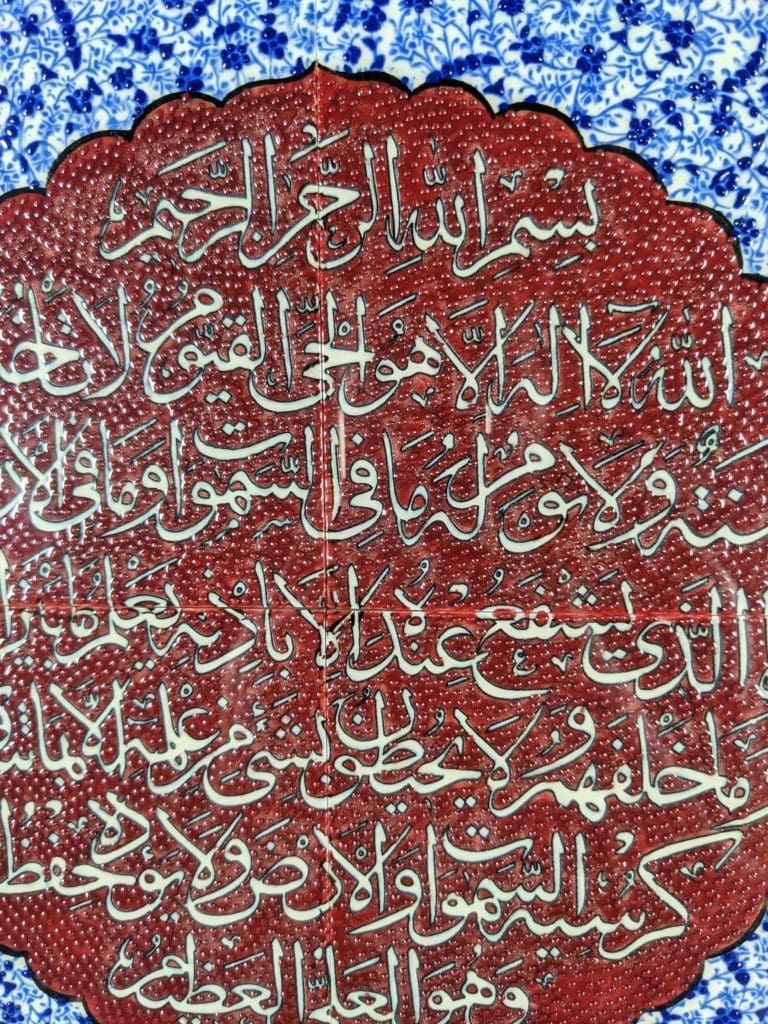 بِسْمِ اللّٰهِ الرَّحْمٰنِ الرَّحِيْمِ
اللّٰهُ لَآ اِلٰهَ اِلَّا هُوَ الْحَىُّ الْقَيُّوْمُ لَا
وَلَا نَوْمٌ لَهُ مَا فِى السَّمٰوَاتِ وَمَا فِى
الَّذِى يَشْفَعُ عِنْدَهُ اِلَّا بِاِذْنِهِ يَعْلَمُ مَا
مَا خَلْفَهُمْ وَلَا يُحِيطُونَ بِشَىْءٍ مِنْ عِلْمِهِ اِلَّا
كُرْسِيُّهُ السَّمٰوَاتِ وَالْاَرْضَ وَلَا يَؤُدُهُ
وَهُوَ الْعَلِىُّ الْعَظِيمُ